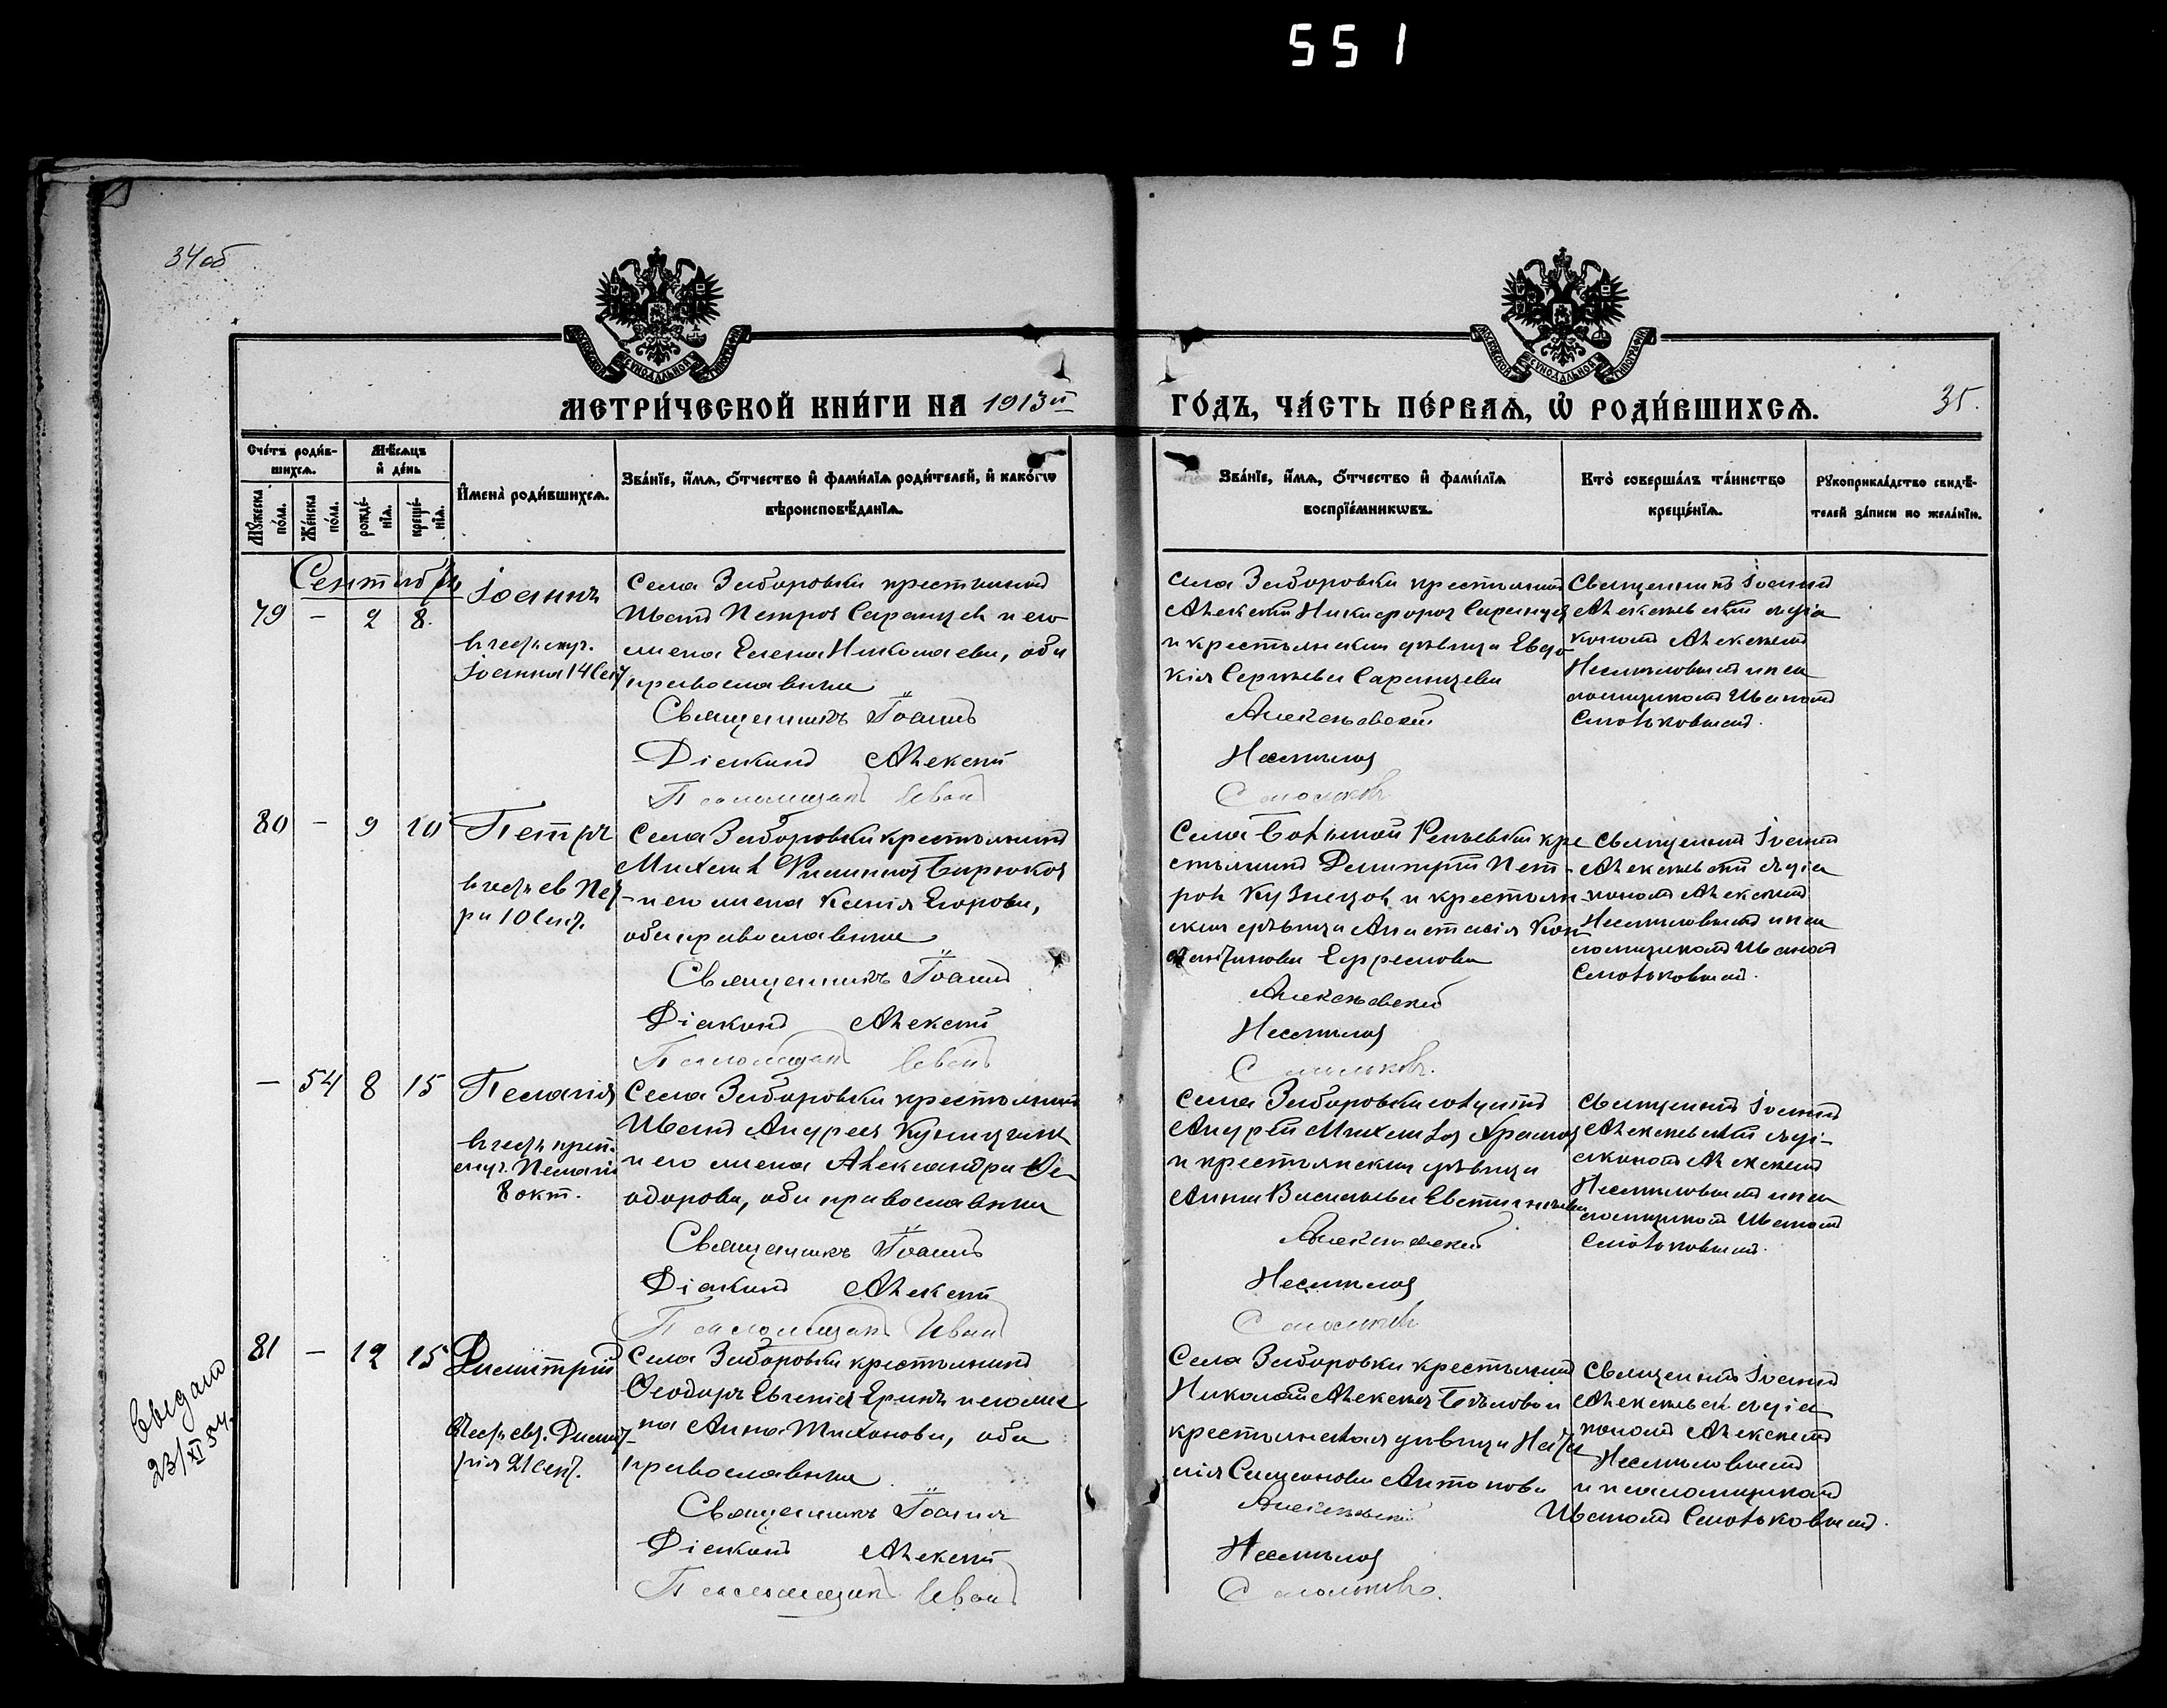 551
34об
МЕТРИ́ЧЕСКОЙ КНИ́ГИ НА 1913й
ГО́ДЪ, ЧА́СТЬ ПЕ́РВАѦ, Ѡ РОДИ́ВШИХСѦ.
35.
Сче́тъ роди́в-
шихсѧ.
Мѣ́сѧцъ
и҆ де́нь
Мꙋ́жеска
по́ла.
Же́нска
по́ла.
рожде́-
нїѧ.
креще́-
нїѧ.
И҆мена̀ роди́вшихсѧ.
Зва́нїе, и҆́мѧ, ѻ҆́тчество и҆ фами́лїѧ роди́телей, и҆ како́гѡ
вѣроисповѣ́данїѧ.
Зва́нїе, и҆́мѧ, ѻ҆́тчество и҆ фами́лїѧ
воспрїе́мникѡвъ.
Кто̀ соверша́лъ та́инство
креще́нїѧ.
Рꙋкоприкла́дство свидѣ́-
телей за́писи по жела́нїю.
Сентябрь
79 – 2 8.
Іоаннъ
въ честь муч.
Іоанна 14 Сент
Села Заборовки крестьянинъ
Иванъ Петровъ Саранцевъ и его
жена Елена Николаева, оба
православные
Священникъ Іоаннъ
Діаконъ Алексѣй
Псаломщикъ Иванъ
Села Заборовки крестьянинъ
Алексѣй Никифоровъ Саранцевъ
и крестьянская дѣвица Евдо
кія Сергѣева Саранцева
Несмѣловъ
Смольковъ
Священникъ Іоаннъ
съ діа
кономъ Алексѣемъ
Несмѣловымъ и пса
ломщикомъ Иваномъ
Смольковымъ.
80 – 9 10
Петръ
въ честь св Пет
ра 10 Сент.
Села Заборовки крестьянинъ
Михаилъ Филипповъ Бирюковъ
и его жена Ксенія Егорова,
оба православные
Священникъ Іоаннъ
Діаконъ Алексѣй
Псаломщикъ Иванъ
Села Большой Репьевки кре
стьянинъ Димитрій Пет-
ровъ Кузнецовъ и крестьян-
ская дѣвица Анастасія Кон
стантинова Ефремова
Несмѣловъ
Смольковъ.
Священникъ Іоаннъ
съ діа
кономъ Алексѣемъ
Несмѣловымъ и пса
ломщикомъ Иваномъ
Смольковымъ.
– 54 8 15
Пелагія
въ честь преп.
Пелагіи
8 окт.
Села Заборовки крестьянинъ
Иванъ Андреевъ
и его жена Александра Ѳе
одорова, оба православные
Священникъ Іоаннъ
Діаконъ Алексѣй
Псаломщикъ Иванъ
Села Заборовки
Андрей Михайловъ Храмовъ
и крестьянская дѣвица
Анна Васильева Евстигнѣева
Несмѣловъ
Смольковъ
Священникъ Іоаннъ
съ ді-
акономъ Алексѣемъ
Несмѣловымъ и пса
ломщикомъ Иваномъ
Смольковымъ.
81 – 12 15
Димитрій
въ честь свт. Димит-
рія 21 сент.
Села Заборовки крестьянинъ
Ѳеодоръ Евгеніевъ Еринъ и его же
на Анна Тихонова, оба
православные
Священникъ Іоаннъ
Діаконъ Алексѣй
Псаломщикъ Иванъ
Села Заборовки крестьянинъ
Николай Алексѣевъ Бѣловъ и
крестьянская дѣвица Ната
лія Симеонова Антонова
Несмѣловъ
Смольковъ.
Священникъ Іоаннъ
съ діа
кономъ Алексѣемъ
Несмѣловымъ
и псаломщикомъ
Иваномъ Смольковымъ.
23/XI 54.